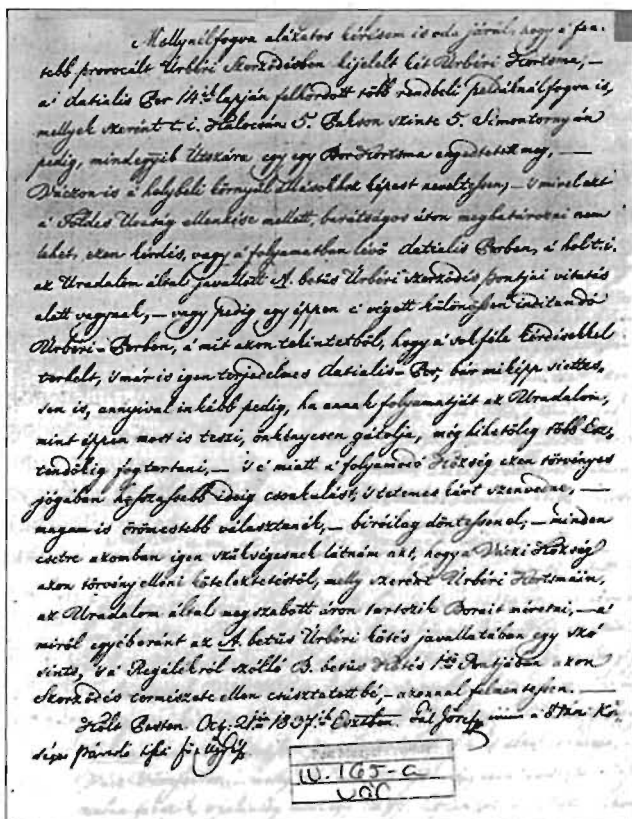 Mellynélfogva alázatos kérésem is oda járul, hogy a' fen-
tebb provocált Urbéri Szerződésben kijelelt két Urbéri Kortsma, —
a' datialis Per 14ik lapján felhordott több rendbeli példáknál fogva is,
mellyek szerént t. i. Kalocsán 5. Pakson szinte 5. Simontornyán
pedig, mindegyik Utszára egy egy Bor Kortsma engedtetett meg, —
Váczon is a' helybeli környülállásokhoz képest neveltessen, – 's mivel ezt
a' Földes Uraság ellenkése mellett, barátságos úton meghatározni nem
lehet, ezen kérdés, vagy a' folyamatban lévő datialis Perben, a' hol t. i.
az Uradalom által javallott A. betüs Urbéri Szerződés pontjai vitatás
alatt vagynak, – vagy pedig egy éppen e' végett különössen inditandó
Urbéri-Perben, a' mit azon tekintetből, hogy a' sok féle kérdésekkel
terhelt, 's már is igen terjedelmes datialis-Per, bár miképp siettes-
sen is, annyival inkább pedig, ha annak folyamatját az Uradalom,
mint éppen most is teszi, önkényesen gátolja, még hihetőleg több Esz-
tendőkig fog tartani, – 's e' miatt a' folyamodó Község ezen törvényes
jogában hosszassebb ideig csonkulást, 's tetemes kárt szenvedne, —
magam is örömestebb választanék, – biróilag döntessen el, – minden
esetre azomban igen szükségesnek látnám azt, hogy a' Váczi Község
azon törvény elleni köteleztetéstől, melly szerént Urbéri Kortsmáin,
az Uradalom által megszabott áron tartozik Borait méretni, – a'
miről egyéberánt az A. betüs Urbéri kötés javallatában egy szó
sints, 's a' Regálékról szólló B. betüs Kötés 1ső Pontjában azon
Szerződés természete ellen csusztatott bé, – azonnal felmentessen. —
Költ Pesten. Oct. 21én 1837ik Esztben. Pál József
IV. 165-a
VÁC